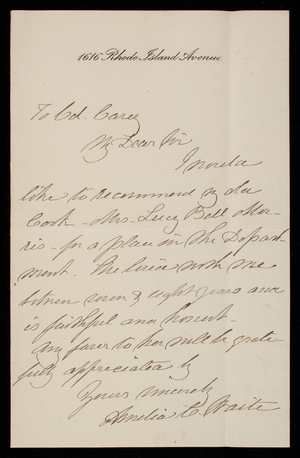 1616 Rhode Island Avenue
To Col. Casey
My Dear Sir
I would
like to recommend my old
Cook - Mrs. Lucy Bell Mor-
ris - for a place in the Depart-
ment. She lived with me
between seven & eight years and
is faithful and honest -
Any favor to her will be grate-
fully appreciated by
Yours sincerely
Amelia C. Waite